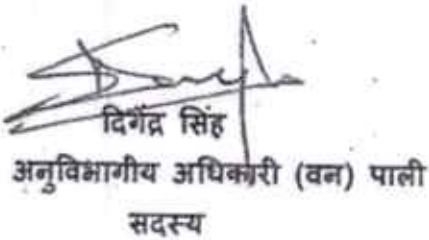 दिगेंद्र सिंह
अनुविभागीय अधिकारी (वन) पाली
सदस्य